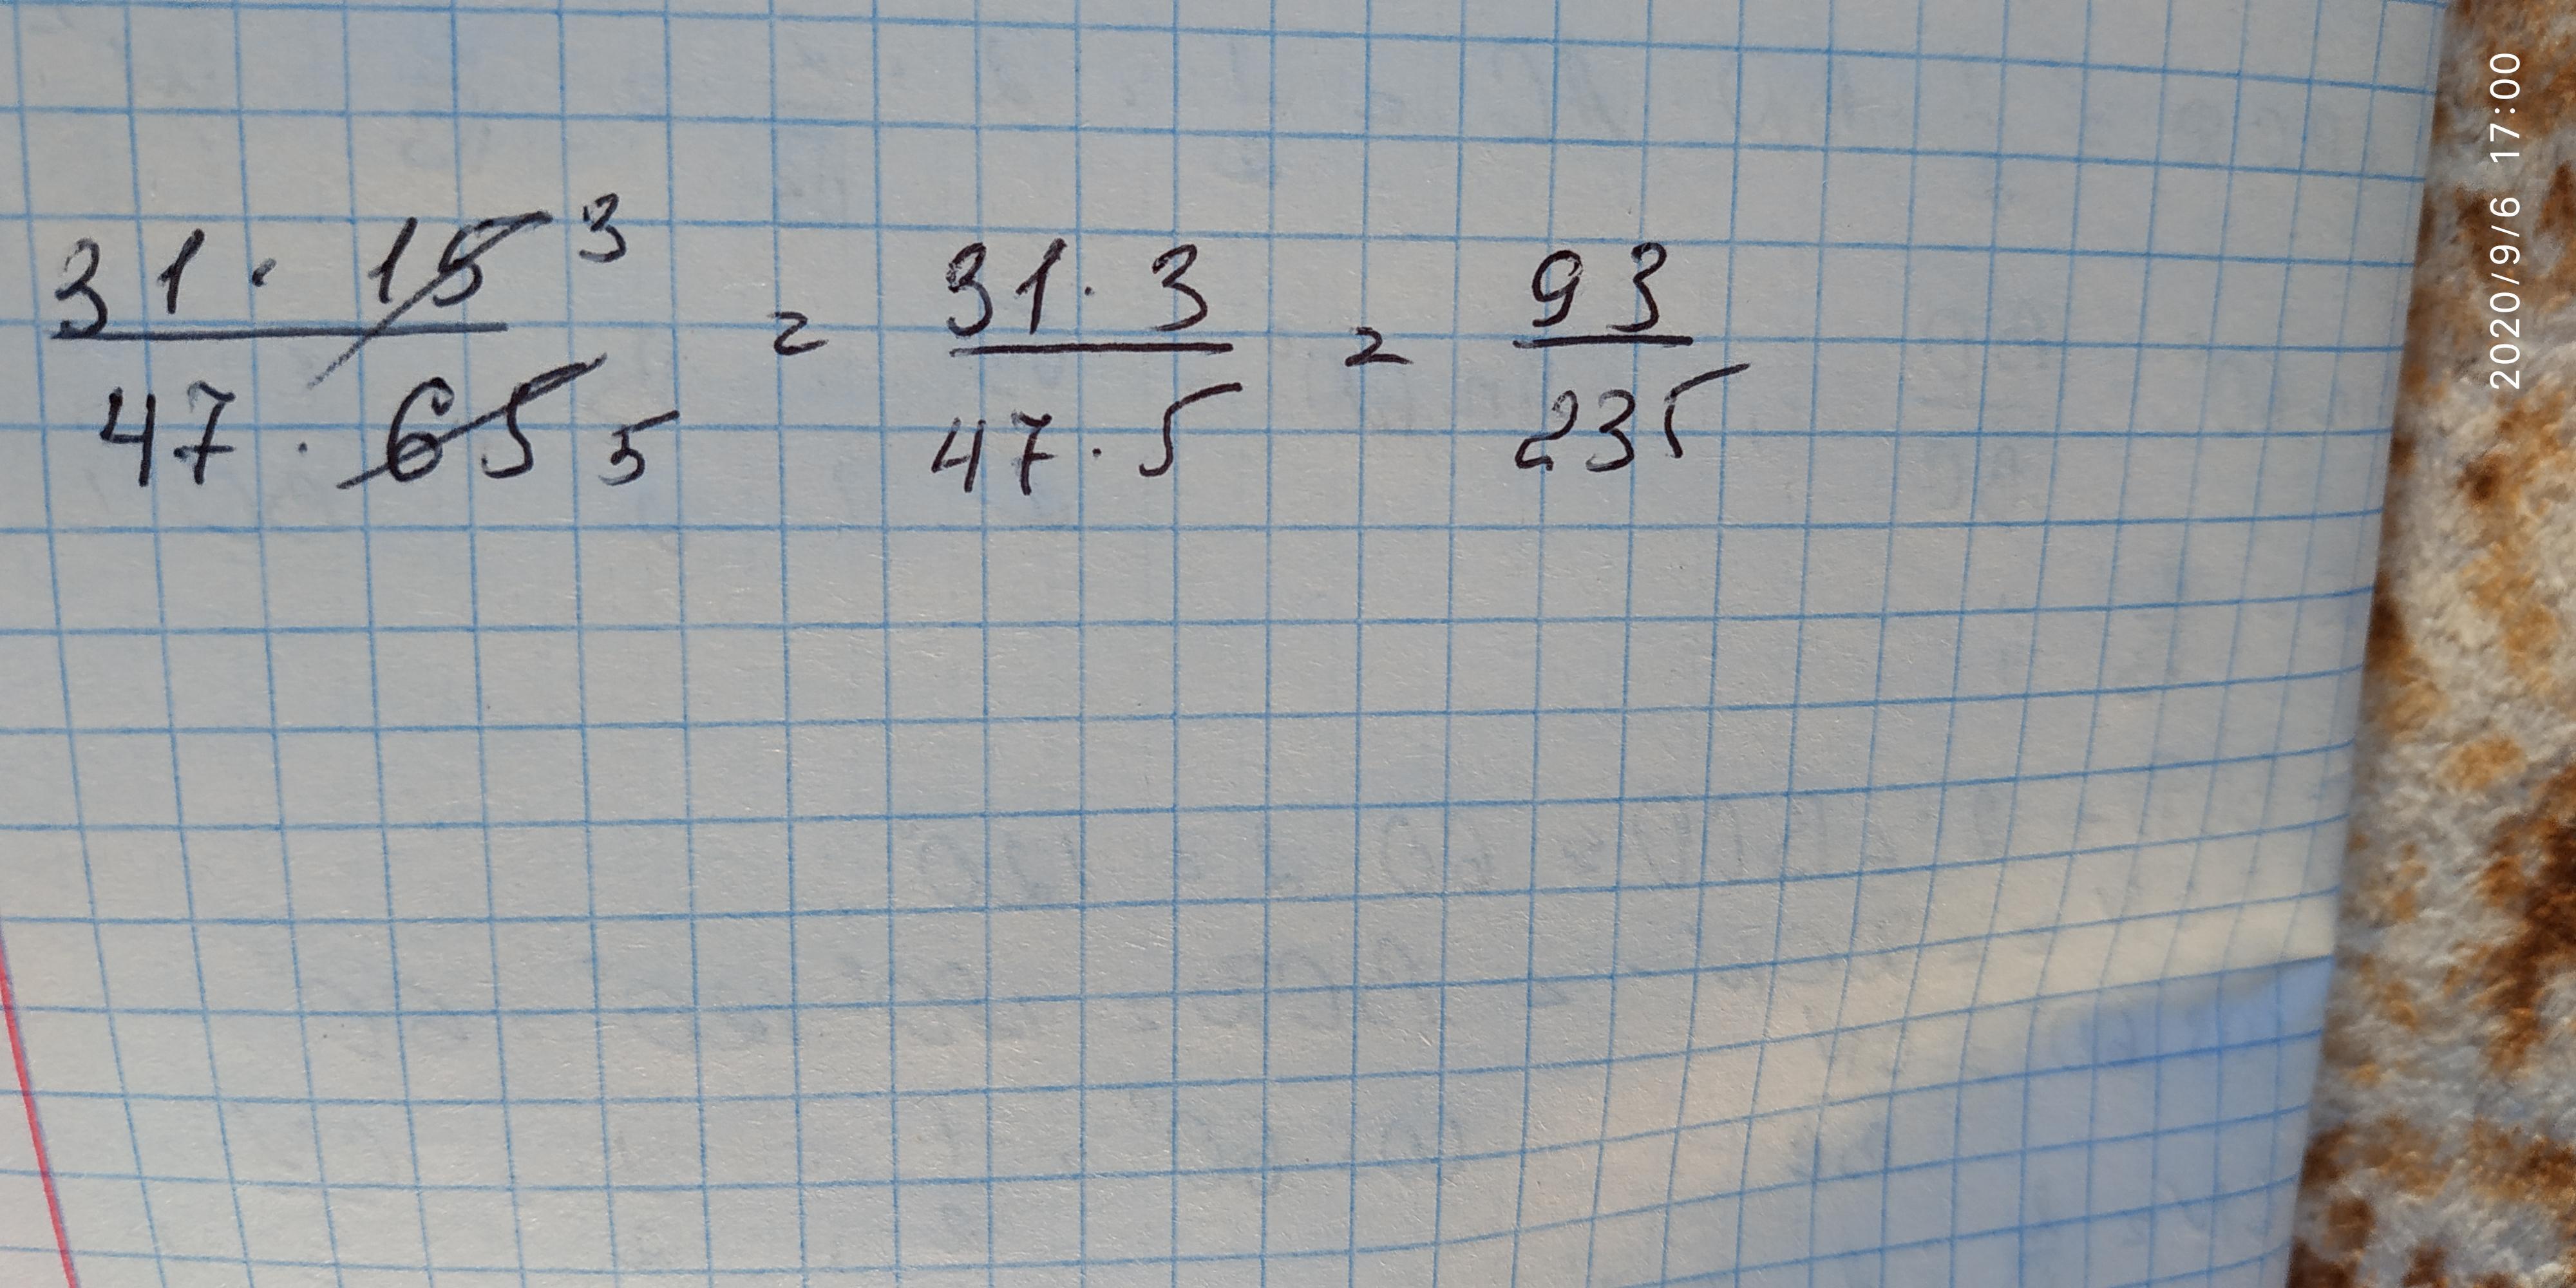 31 · 15 3 / 47 · 65 5 = 31 · 3 / 47 · 5 = 93 / 235
2020/9/6 17:00